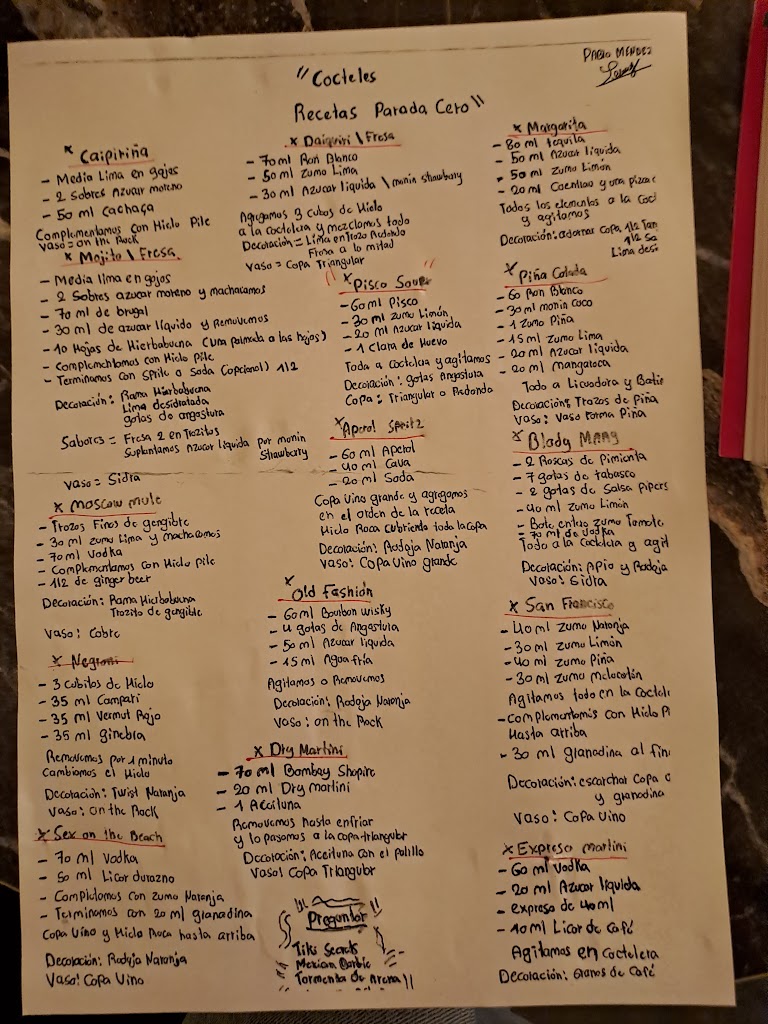 PABLO MENDEZ
"Cocteles
Recetas Parada Cero"
x Caipiriña
- Media Lima en gajos
- 2 Sobres Azucar moreno
- 50 ml cachaça
Complementamos con Hielo Pile
Vaso = on the Rock
x Mojito \ Fresa.
- Media lima en gajos
- 2 Sobres azucar moreno y machacamos
- 70 ml de brugal
- 30 ml de azucar líquido y Removemos
- 10 Hojas de Hierbabuena (una palmada a las hojas)
- Complementamos con Hielo Pile
- Terminamos con Sprite o Soda (opcional) 1/2
Decoración: Rama Hierbabuena
Lima desidratada
gotas de angastura
Sabores = Fresa 2 en Trozitos
Suplantamos Azucar liquida por monin
Strawberry
Vaso = Sidra
x Moscow mule
- Trozos Finos de gengibre
- 30 ml zumo Lima y machacamos
- 70 ml Vodka
- Complementamos con Hielo Pile
- 1/2 de ginger beer
Decoración: Rama Hierbabuena
Trozito de gengible
Vaso: Cobre
x Negroni
- 3 Cubitos de Hielo
- 35 ml Campari
- 35 ml Vermut Rojo
- 35 ml ginebra
Removemos por 1 minuto
Cambiamos el Hielo
Decoración: Twist Naranja
Vaso: on the Rock
x Sex on the Beach
- 70 ml Vodka
- 50 ml Licor durazno
- Completamos con zumo Naranja
- Terminamos con 20 ml granadina
Copa Vino y Hielo Roca hasta arriba
Decoración: Rodaja Naranja
Vaso: Copa Vino
x Daiquiri \ Fresa
- 70 ml Ron Blanco
- 50 ml zumo Lima
- 30 ml Azucar liquida \ monin strawbarry
Agregamos 3 cubos de Hielo
a la coctelera y mezclamos todo
Decoración = Lima en Trozo Redondo
Fresa a lo mitad
Vaso = Copa Triangular
"x Pisco Sour"
- 60 ml Pisco
- 30 ml zumo Limón
- 20 ml Azucar líquida
- 1 Clara de Huevo
Toda a Coctelera y agitamos
Decoración: gotas Angastura
Copa: Triangular o Redonda
x Aperol Spritz
- 60 ml Aperol
- 40 ml Cava
- 20 ml Soda
Copa Vino grande y agregamos
en el orden de la receta
Hielo Roca Cubriendo toda la Copa
Decoración: Rodaja Naranja
Vaso: Copa Vino grande
x Old Fashión
- 60 ml Bourbon wisky
- 4 gotas de Angastura
- 50 ml Azucar liquida
- 15 ml Agua fría
Agitamos o Removemos
Decoración: Rodaja Naranja
Vaso: on the Rock
x Dry Martini
- 70 ml Bombay Shapire
- 20 ml Dry martini
- 1 Aceituna
Removemos hasta enfriar
y lo pasamos a la copa triangular
Decoración: Aceituna con el palillo
Vaso: Copa Triangular
Preguntar
Tiki
Mexican Barbie
Tormenta de Arena
x Margarita
- 80 ml Tequila
- 50 ml Azucar líquida
- 50 ml zumo Limón
- 20 ml Coentrau y una pizca
Todos los elementos a la Coct
y agitamos
Decoración: adornar Copa, 1/2 Tan
1/2 Sa
Lima desi
x Piña Colada
- 60 Ron Blanco
- 30 ml monin coco
- 1 zumo Piña
- 15 ml zumo Lima
- 20 ml Azucar líquida
- 20 ml mangaroca
Todo a Licuadora y Bati
Decoración: Trozos de Piña
Vaso: Vaso Forma Piña
x Blady
- 2 Roscas de Pimienta
- 7 gotas de tabasco
- 2 gotas de Salsa Pipers
- 40 ml zumo Limón
- Bote entero zumo Tomate
- 70 ml de Vodka
Todo a la Coctelera y agit
Decoración: Apio y Rodaja
Vaso: Sidra
x San Francisco
- 40 ml zumo Naranja
- 30 ml zumo Limón
- 40 ml zumo Piña
- 30 ml zumo melocotón
Agitamos todo en la Coctel
- complementamis con Hielo Pi
Hasta arriba
- 30 ml granadina al fin
Decoración: escarchar Copa
y granadina
Vaso: Copa Vino
x Expreso martini
- 60 ml Vodka
- 20 ml Azucar líquida
- expreso de 40 ml
- 10 ml Licor de Café
Agitamos en Coctelera
Decoración: Granos de Café